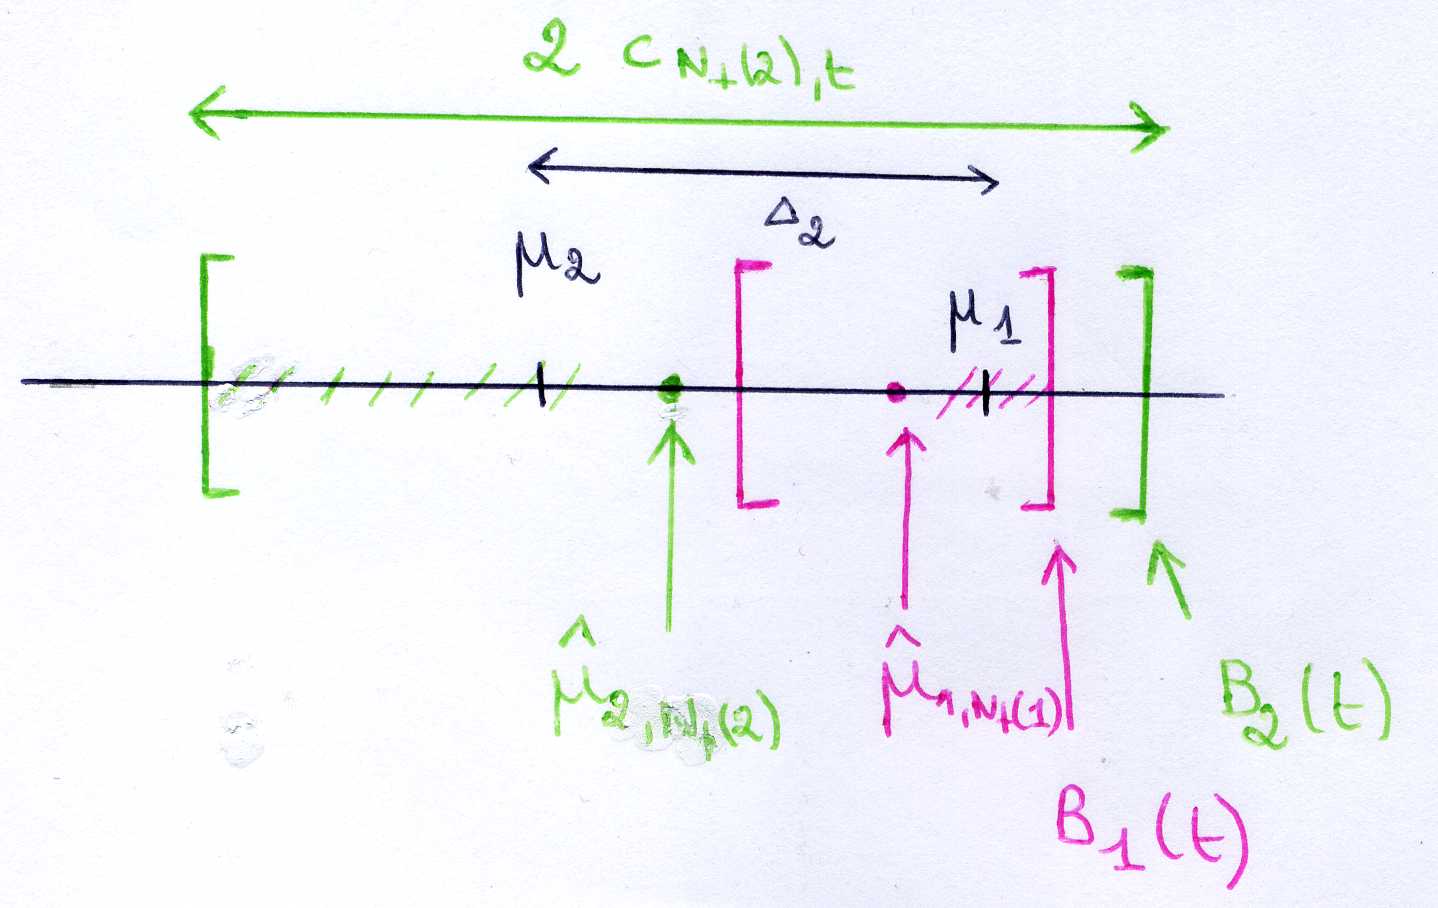 2 c N_t(2),t
Δ2
μ2
μ1
μ̂2,N_t(2)
μ̂1,N_t(1)
B2(t)
B1(t)